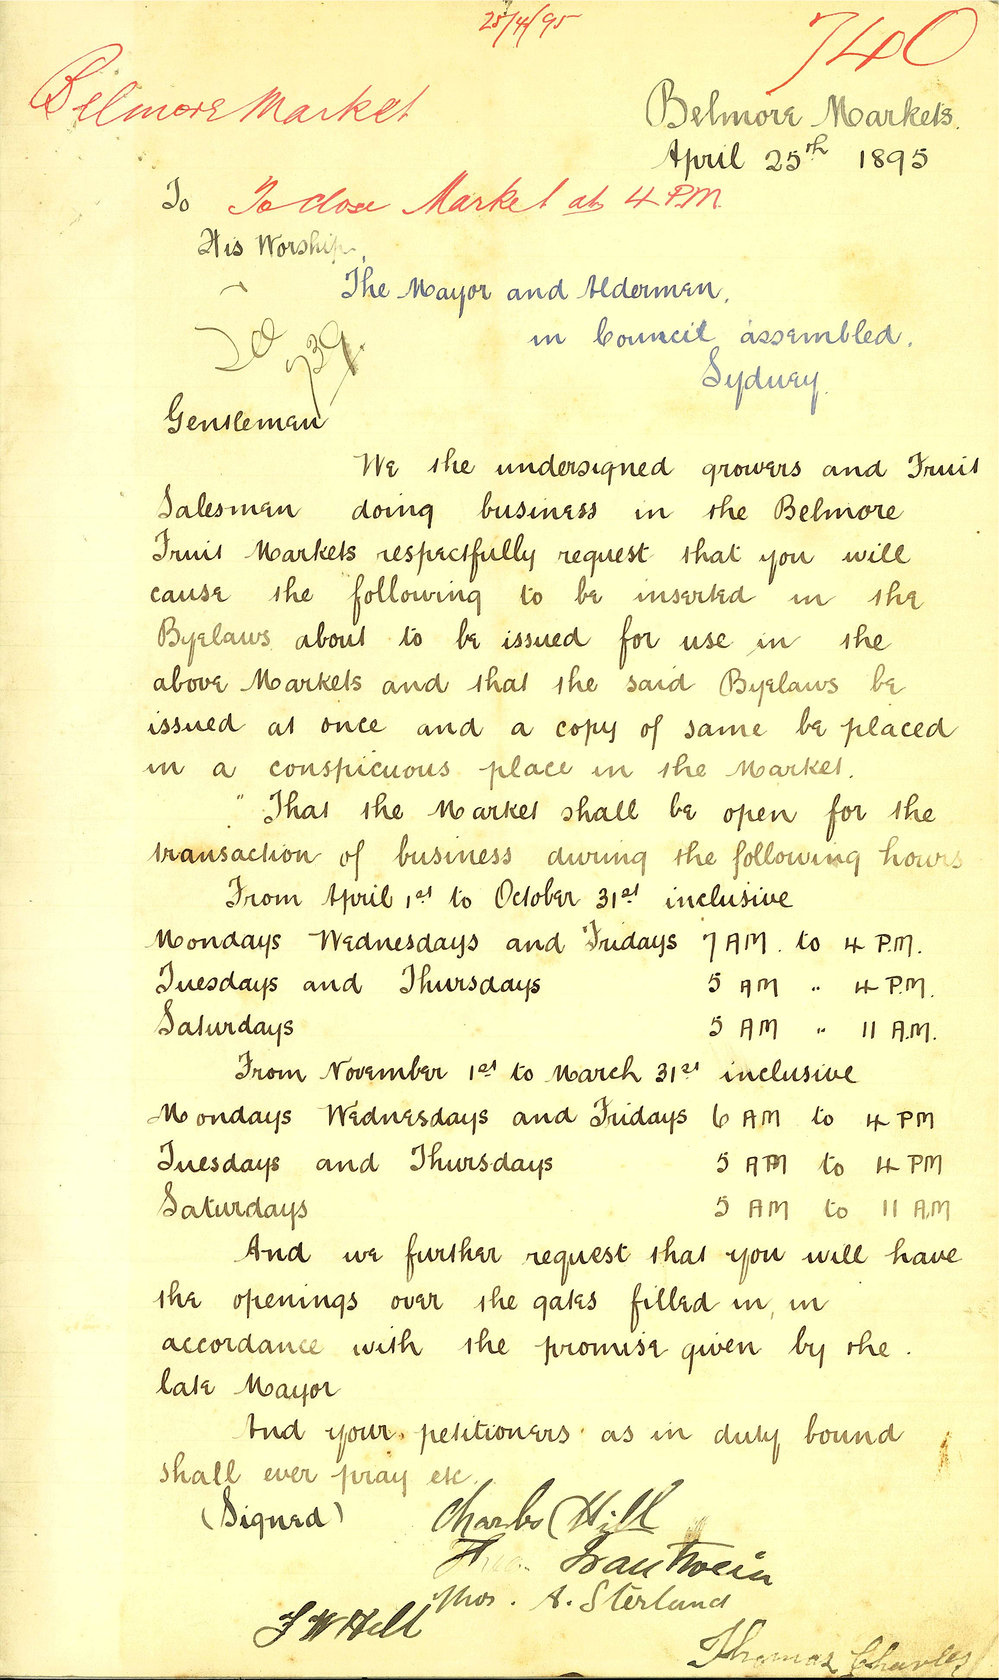 25/4/95
740
Belmore Market
Belmore Markets.
April 25th 1895
To To close Market at 4 P.M.
His Worship,
The Mayor and Aldermen,
in Council assembled,
Sydney.
739
Gentlemen
We the undersigned growers and Fruit
Salesmen doing business in the Belmore
Fruit Markets respectfully request that you will
cause the following to be inserted in the
Byelaws about to be issued for use in the
above Markets and that the said Byelaws be
issued at once and a copy of same be placed
in a conspicuous place in the Market.
"That the Market shall be open for the
transaction of business during the following hours
From April 1st to October 31st inclusive
Mondays Wednesdays and Fridays 7 AM. to 4 P.M.
Tuesdays and Thursdays 5 AM " 4 P.M.
Saturdays 5 AM " 11 A.M.
From November 1st to March 31st inclusive
Mondays Wednesdays and Fridays 6 AM to 4 PM
Tuesdays and Thursdays 5 AM to 4 PM
Saturdays 5 AM to 11 AM
And we further request that you will have
the openings over the gates filled in, in
accordance with the promise given by the
late Mayor
And your petitioners as in duty bound
shall ever pray etc.
(Signed) Charles Hill
Trautwein
Thos. A. Sterland
F W Hill
Thomas Charles